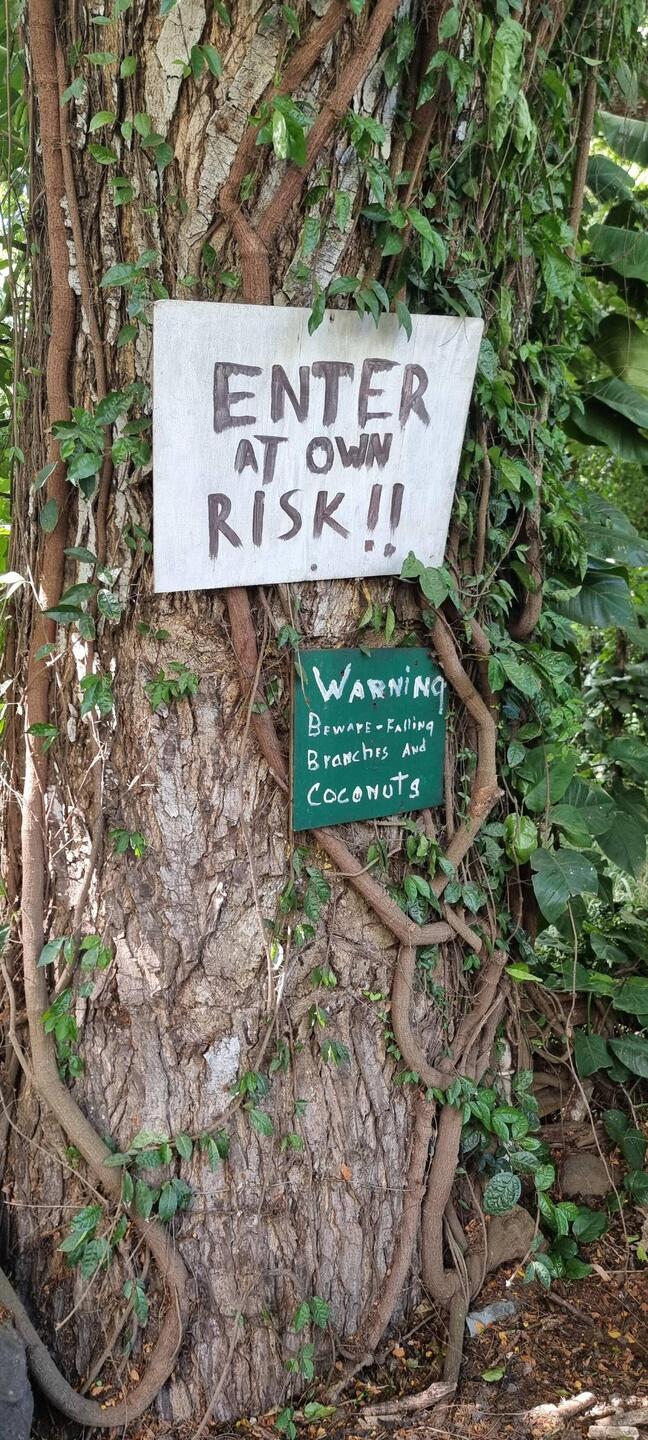 ENTER
AT OWN
RISK!!
WARNiNG
BEWARE-FAlliNG
BrANcHES ANd
COCONUTS